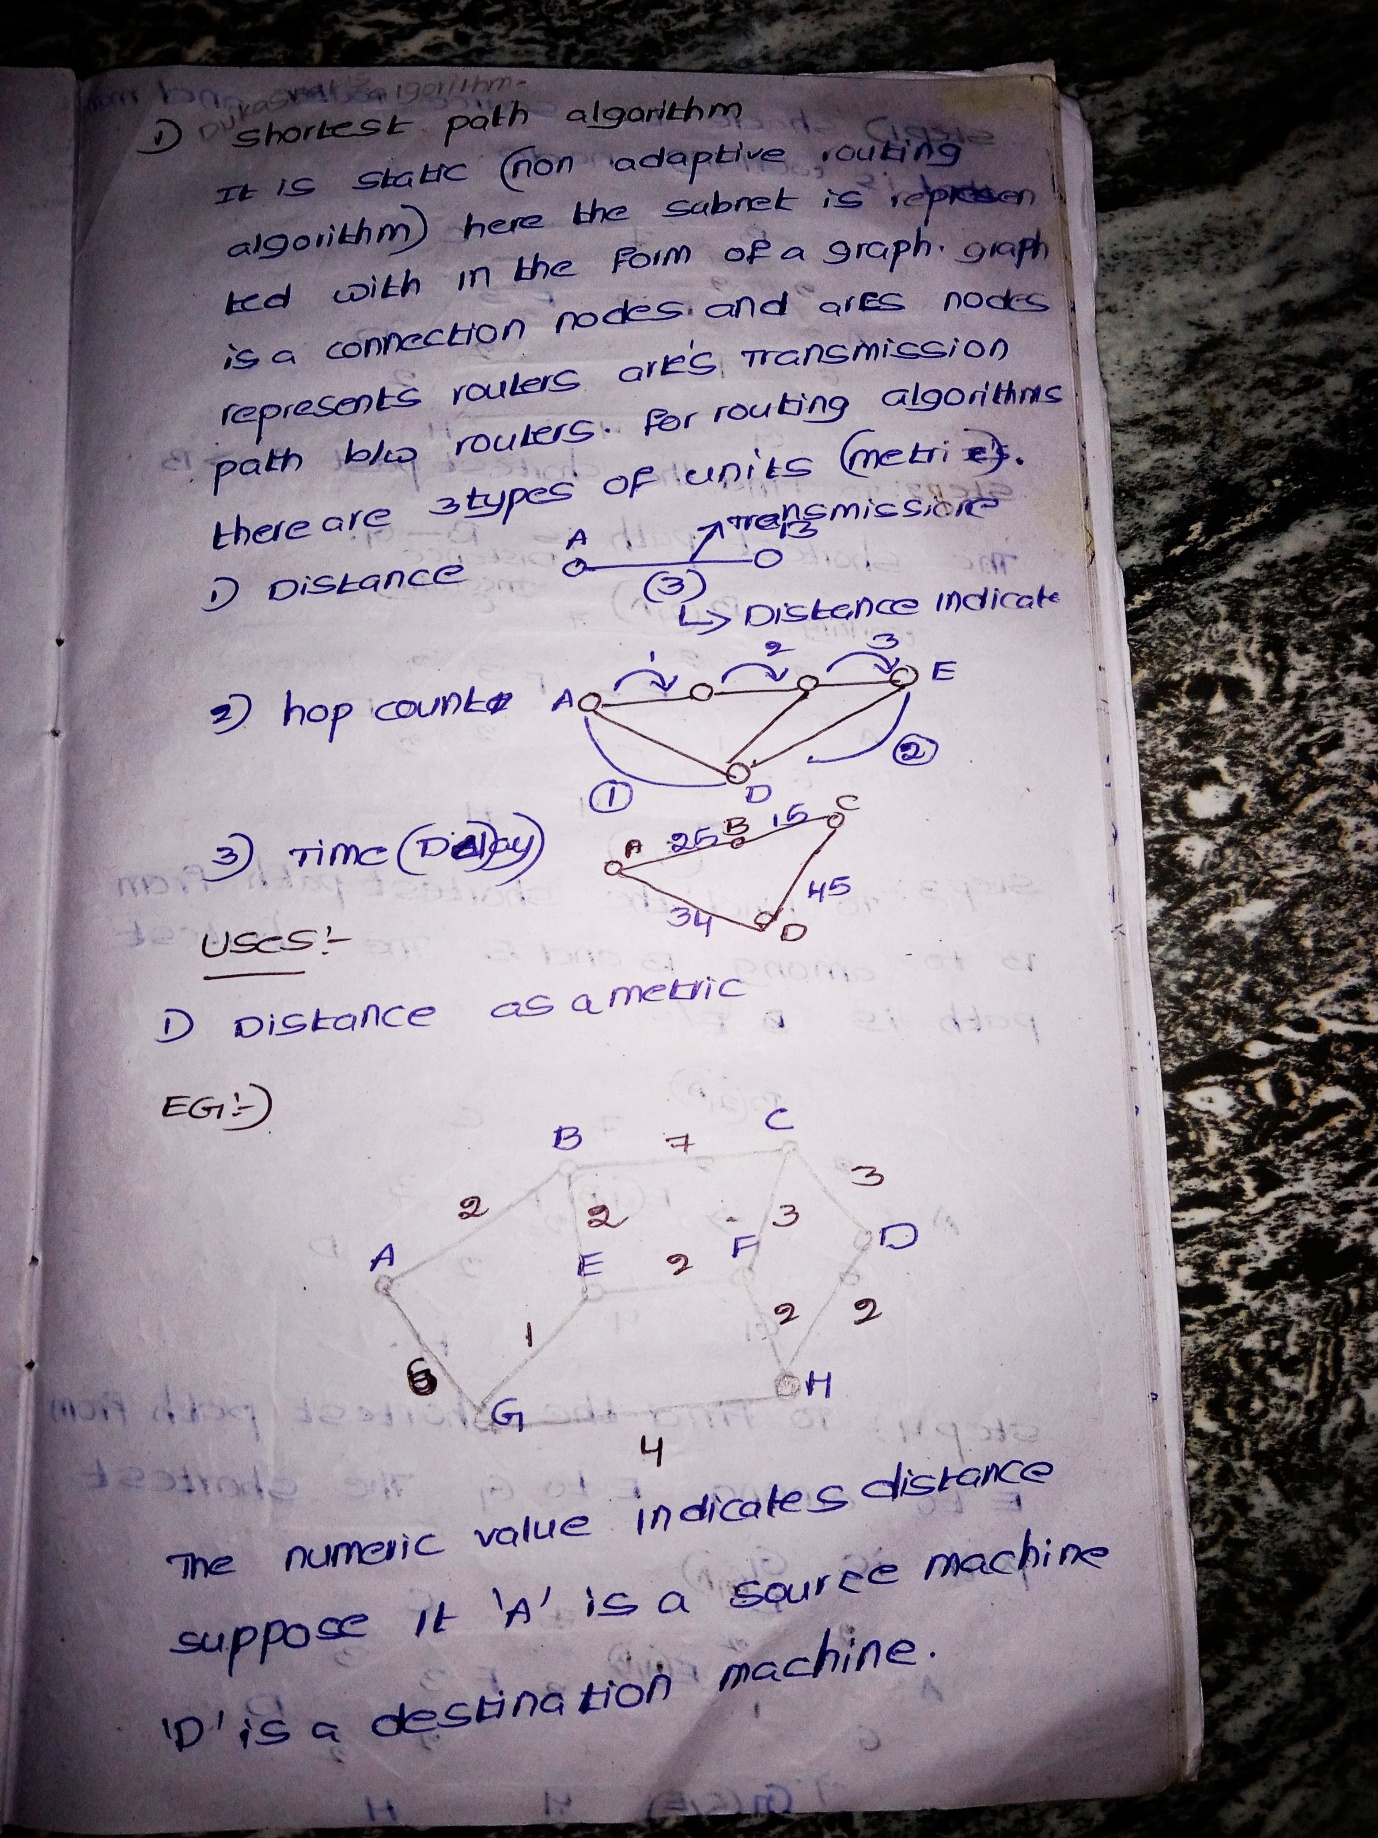 1) shortest path algorithm
It is static (non adaptive routing
algorithm) here the subnet is represen
ted with in the form of a graph. graph
is a connection nodes and arcs nodes
represents routers ark's Transmission
path b/w routers. for routing algorithms
there are 3 types of units (metrics).
Transmission
1) Distance A (3) B
↳ Distence indicate
2) hop count A 1 2 3 E
1 D 2
3) Time (Delay) A 25 B 15 C
34 45 D
Uses:-
1) Distance as a metric
EG:-)
B 7 C
2 2 3 3
A E 2 F D
6 1 2 2
G 4 H
The numeric value indicates distance
suppose it 'A' is a source machine
'D' is a destination machine.